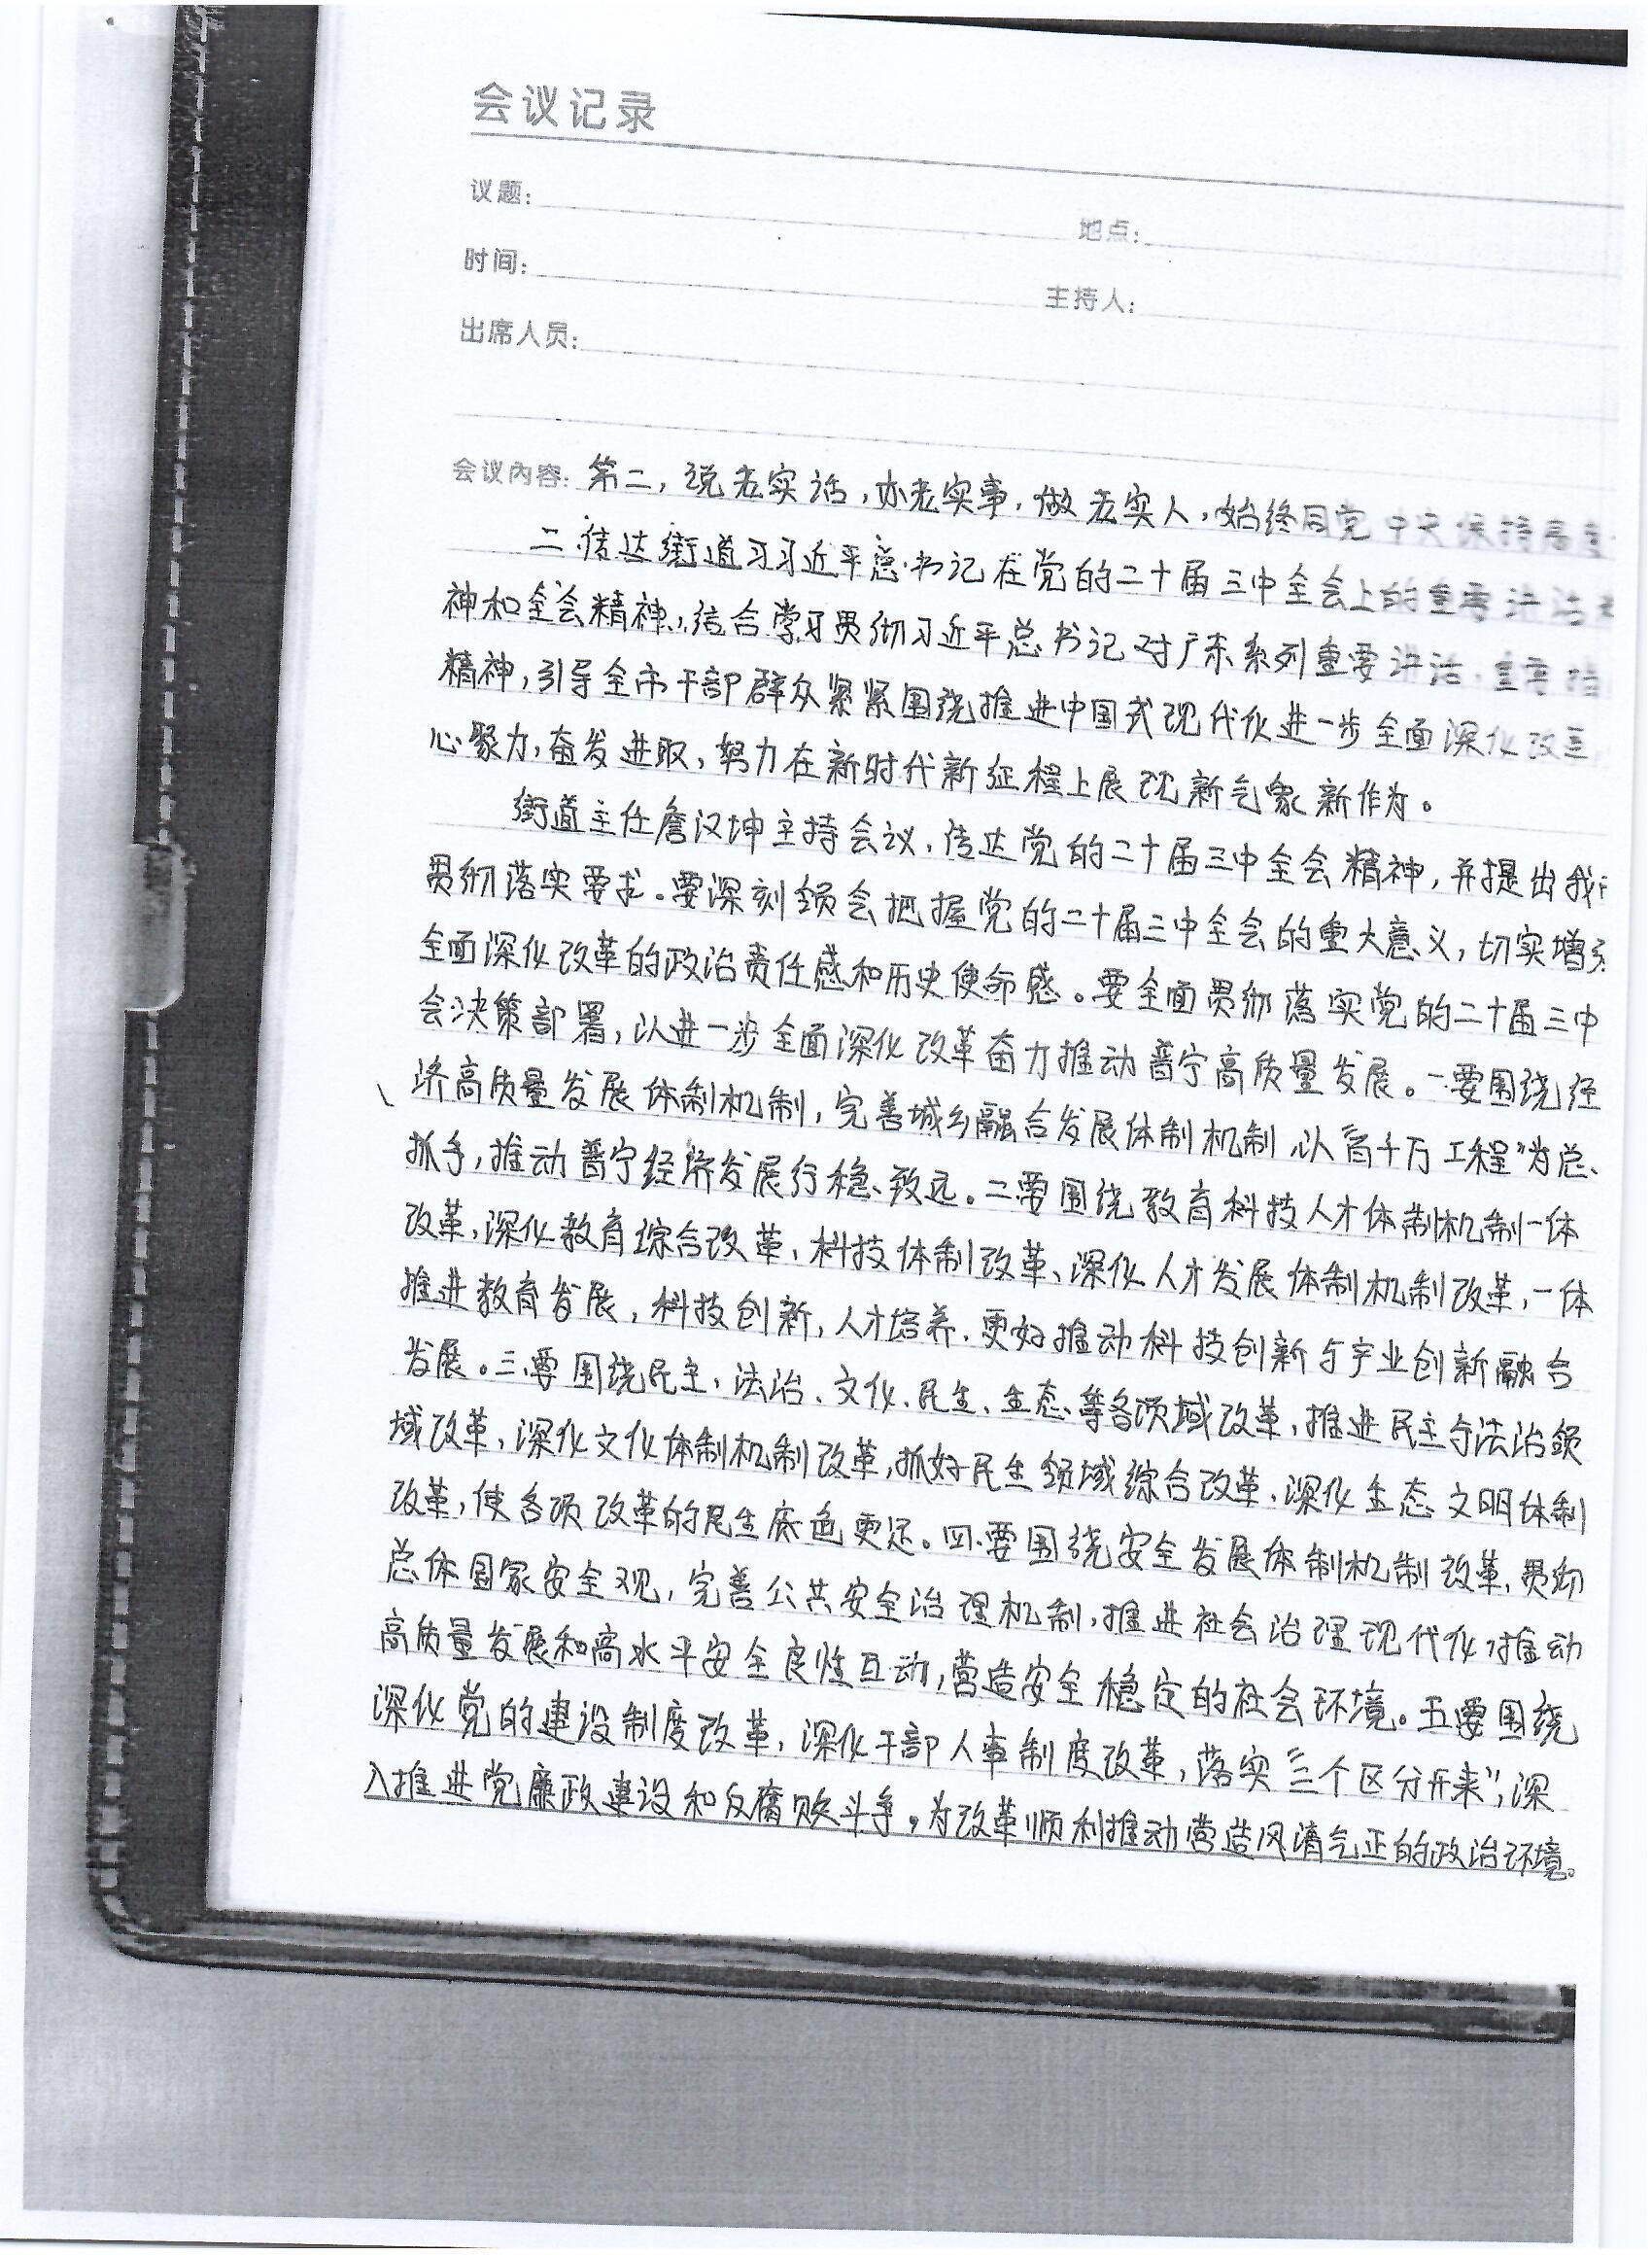 会议记录
议题: 地点:
时间: 主持人:
出席人员:
会议内容: 第二，说老实话，办老实事，做老实人，始终同党中央保持高度
二.传达街道习习近平总书记在党的二十届三中全会上的重要讲话
神和全会精神，结合学习贯彻习近平总书记对广东系列重要讲话、重要指
精神，引导全市干部群众紧紧围绕推进中国式现代化进一步全面深化改革
心聚力，奋发进取，努力在新时代新征程上展现新气象新作为。
街道主任詹汉坤主持会议，传达党的二十届三中全会精神，并提出我
贯彻落实要求。要深刻领会把握党的二十届三中全会的重大意义，切实增
全面深化改革的政治责任感和历史使命感。要全面贯彻落实党的二十届三中
会决策部署，以进一步全面深化改革奋力推动普宁高质量发展。一要围绕经
济高质量发展体制机制，完善城乡融合发展体制机制，以“百千万工程”为总
抓手，推动普宁经济发展行稳致远。二要围绕教育科技人才体制机制一体
改革，深化教育综合改革、科技体制改革、深化人才发展体制机制改革，一体
推进教育发展，科技创新，人才培养，更好推动科技创新与产业创新融合
发展。三要围绕民主、法治、文化、民生、生态等各项域改革，推进民主与法治领
域改革，深化文化体制机制改革，抓好民生领域综合改革，深化生态文明体制
改革，使各项改革的民生底色更足。四.要围绕安全发展体制机制改革，贯彻
总体国家安全观，完善公共安全治理机制，推进社会治理现代化，推动
高质量发展和高水平安全良性互动，营造安全稳定的社会环境。五要围绕
深化党的建设制度改革，深化干部人事制度改革，落实“三个区分开来”，深
入推进党廉政建设和反腐败斗争，为改革顺利推动营造风清气正的政治环境。